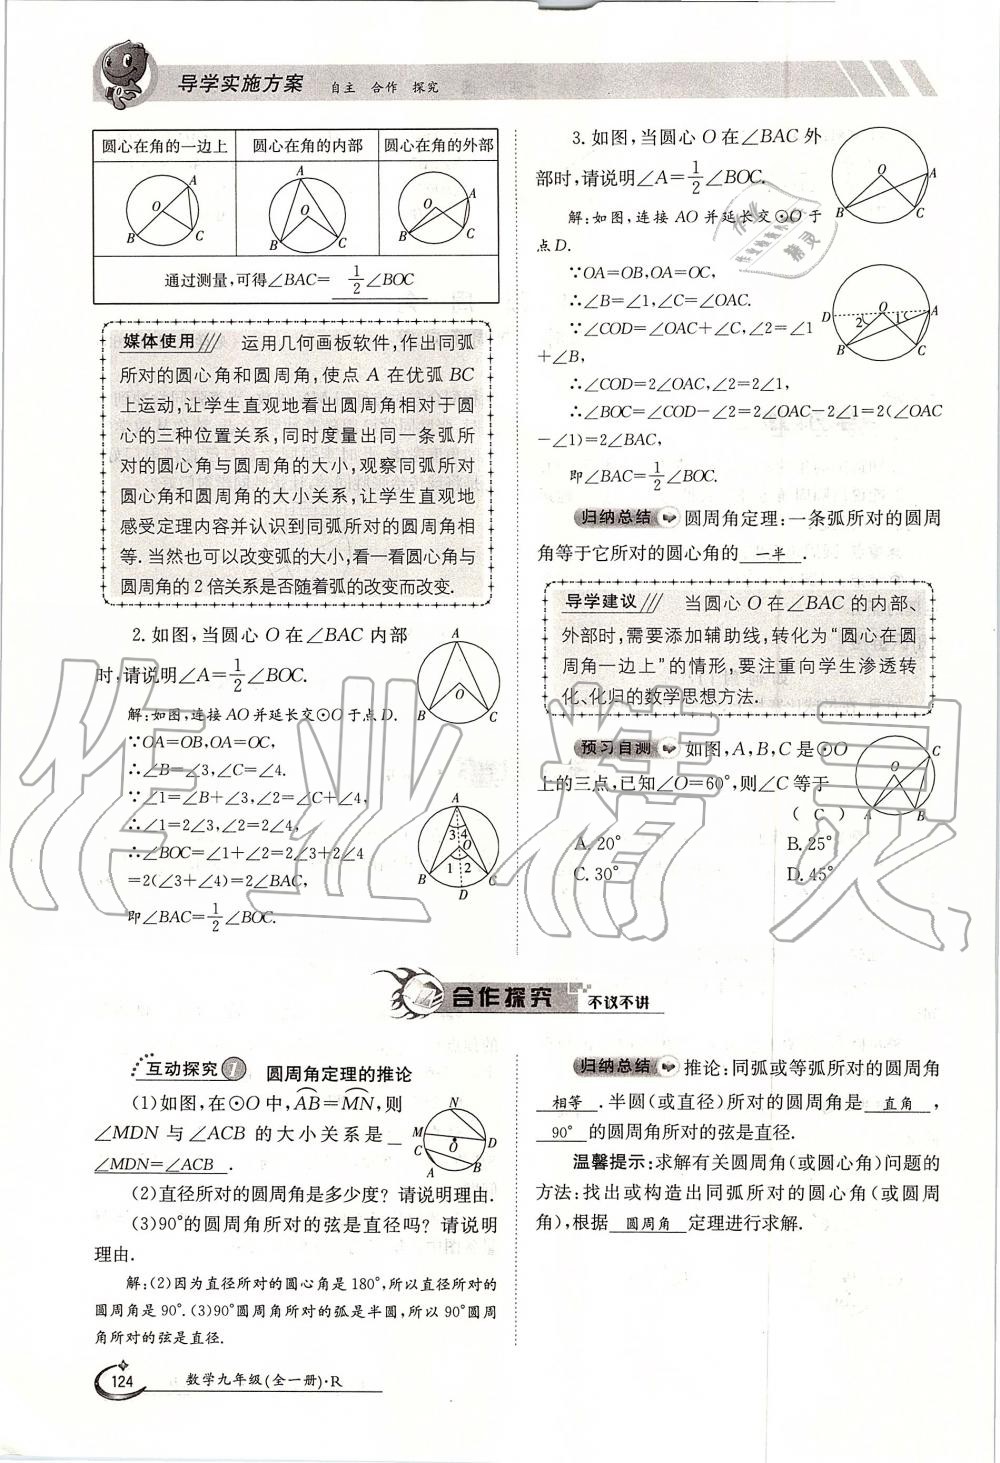 导学实施方案 自主 合作 探究
圆心在角的一边上 圆心在角的内部 圆心在角的外部
A O B C
A O B C
A O B C
通过测量,可得∠BAC= 1/2 ∠BOC
媒体使用 运用几何画板软件,作出同弧
所对的圆心角和圆周角,使点 A 在优弧 BC
上运动,让学生直观地看出圆周角相对于圆
心的三种位置关系,同时度量出同一条弧所
对的圆心角与圆周角的大小,观察同弧所对
圆心角和圆周角的大小关系,让学生直观地
感受定理内容并认识到同弧所对的圆周角相
等. 当然也可以改变弧的大小,看一看圆心角与
圆周角的 2 倍关系是否随着弧的改变而改变.
2. 如图,当圆心 O 在∠BAC 内部
时,请说明∠A=1/2∠BOC.
A O B C
解:如图,连接 AO 并延长交⊙O 于点 D.
∵OA=OB,OA=OC,
∴∠B=∠3,∠C=∠4.
∵∠1=∠B+∠3,∠2=∠C+∠4,
∴∠1=2∠3,∠2=2∠4,
∴∠BOC=∠1+∠2=2∠3+2∠4
=2(∠3+∠4)=2∠BAC,
即∠BAC=1/2∠BOC.
A 3 4 O B 1 2 C D
3. 如图,当圆心 O 在∠BAC 外
部时,请说明∠A=1/2∠BOC.
O A B C
解:如图,连接 AO 并延长交⊙O 于
点 D.
∵OA=OB,OA=OC,
∴∠B=∠1,∠C=∠OAC.
∵∠COD=∠OAC+∠C,∠2=∠1
+∠B,
∴∠COD=2∠OAC,∠2=2∠1,
∴∠BOC=∠COD-∠2=2∠OAC-2∠1=2(∠OAC
-∠1)=2∠BAC,
即∠BAC=1/2∠BOC.
O A D 2 1 B C
归纳总结 圆周角定理:一条弧所对的圆周
角等于它所对的圆心角的 一半 .
导学建议 当圆心 O 在∠BAC 的内部、
外部时,需要添加辅助线,转化为“圆心在圆
周角一边上”的情形,要注重向学生渗透转
化、化归的数学思想方法.
预习自测 如图,A,B,C 是⊙O
上的三点,已知∠O=60°,则∠C 等于
( C )
A. 20° B. 25°
C. 30° D. 45°
C O A B
合作探究 不议不讲
互动探究 1 圆周角定理的推论
(1)如图,在⊙O 中,AB=MN,则
∠MDN 与∠ACB 的大小关系是
∠MDN=∠ACB .
N M D O C A B
(2)直径所对的圆周角是多少度? 请说明理由.
(3)90°的圆周角所对的弦是直径吗? 请说明
理由.
解:(2)因为直径所对的圆心角是 180°,所以直径所对的
圆周角是 90°.(3)90°圆周角所对的弧是半圆,所以 90°圆周
角所对的弦是直径.
归纳总结 推论:同弧或等弧所对的圆周角
相等 .半圆(或直径)所对的圆周角是 直角 ,
90° 的圆周角所对的弦是直径.
温馨提示:求解有关圆周角(或圆心角)问题的
方法:找出或构造出同弧所对的圆心角(或圆周
角),根据 圆周角 定理进行求解.
124 数学九年级(全一册)·R
作业精灵